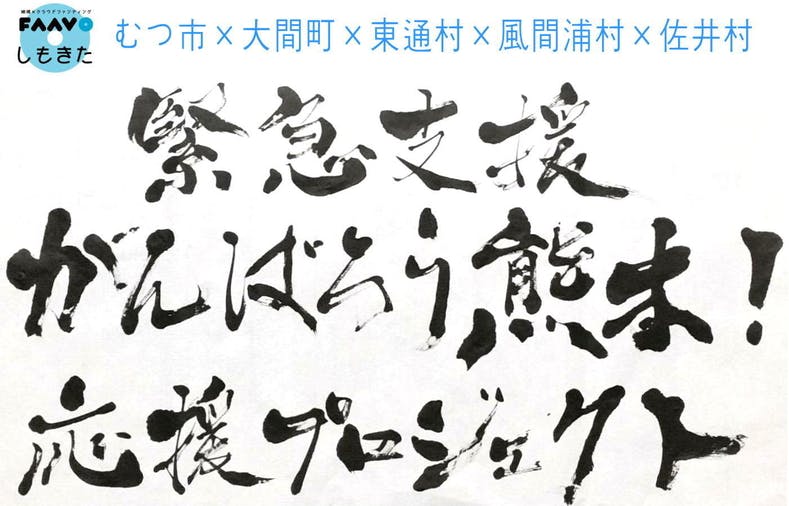 地域×クラウドファンディング
FAAVO
しもきた
むつ市×大間町×東通村×風間浦村×佐井村
緊急支援
がんばろう熊本！
応援プロジェクト